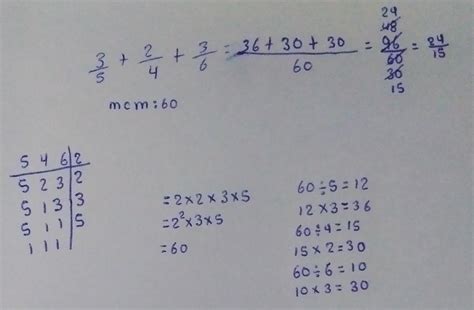 3/5 + 2/4 + 3/6 = 36 + 30 + 30 / 60 = 24 48 96 / 60 30 15 = 24/15
mcm: 60
5 4 6 | 2
5 2 3 | 2
5 1 3 | 3
5 1 1 | 5
1 1 1
= 2 x 2 x 3 x 5
= 2² x 3 x 5
= 60
60 ÷ 5 = 12
12 x 3 = 36
60 ÷ 4 = 15
15 x 2 = 30
60 ÷ 6 = 10
10 x 3 = 30